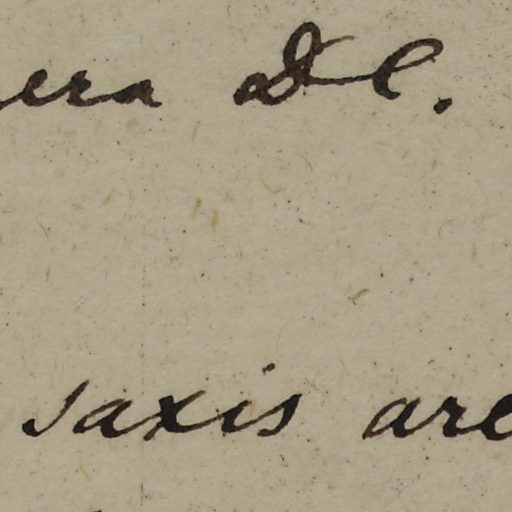 era DC.
saxis are